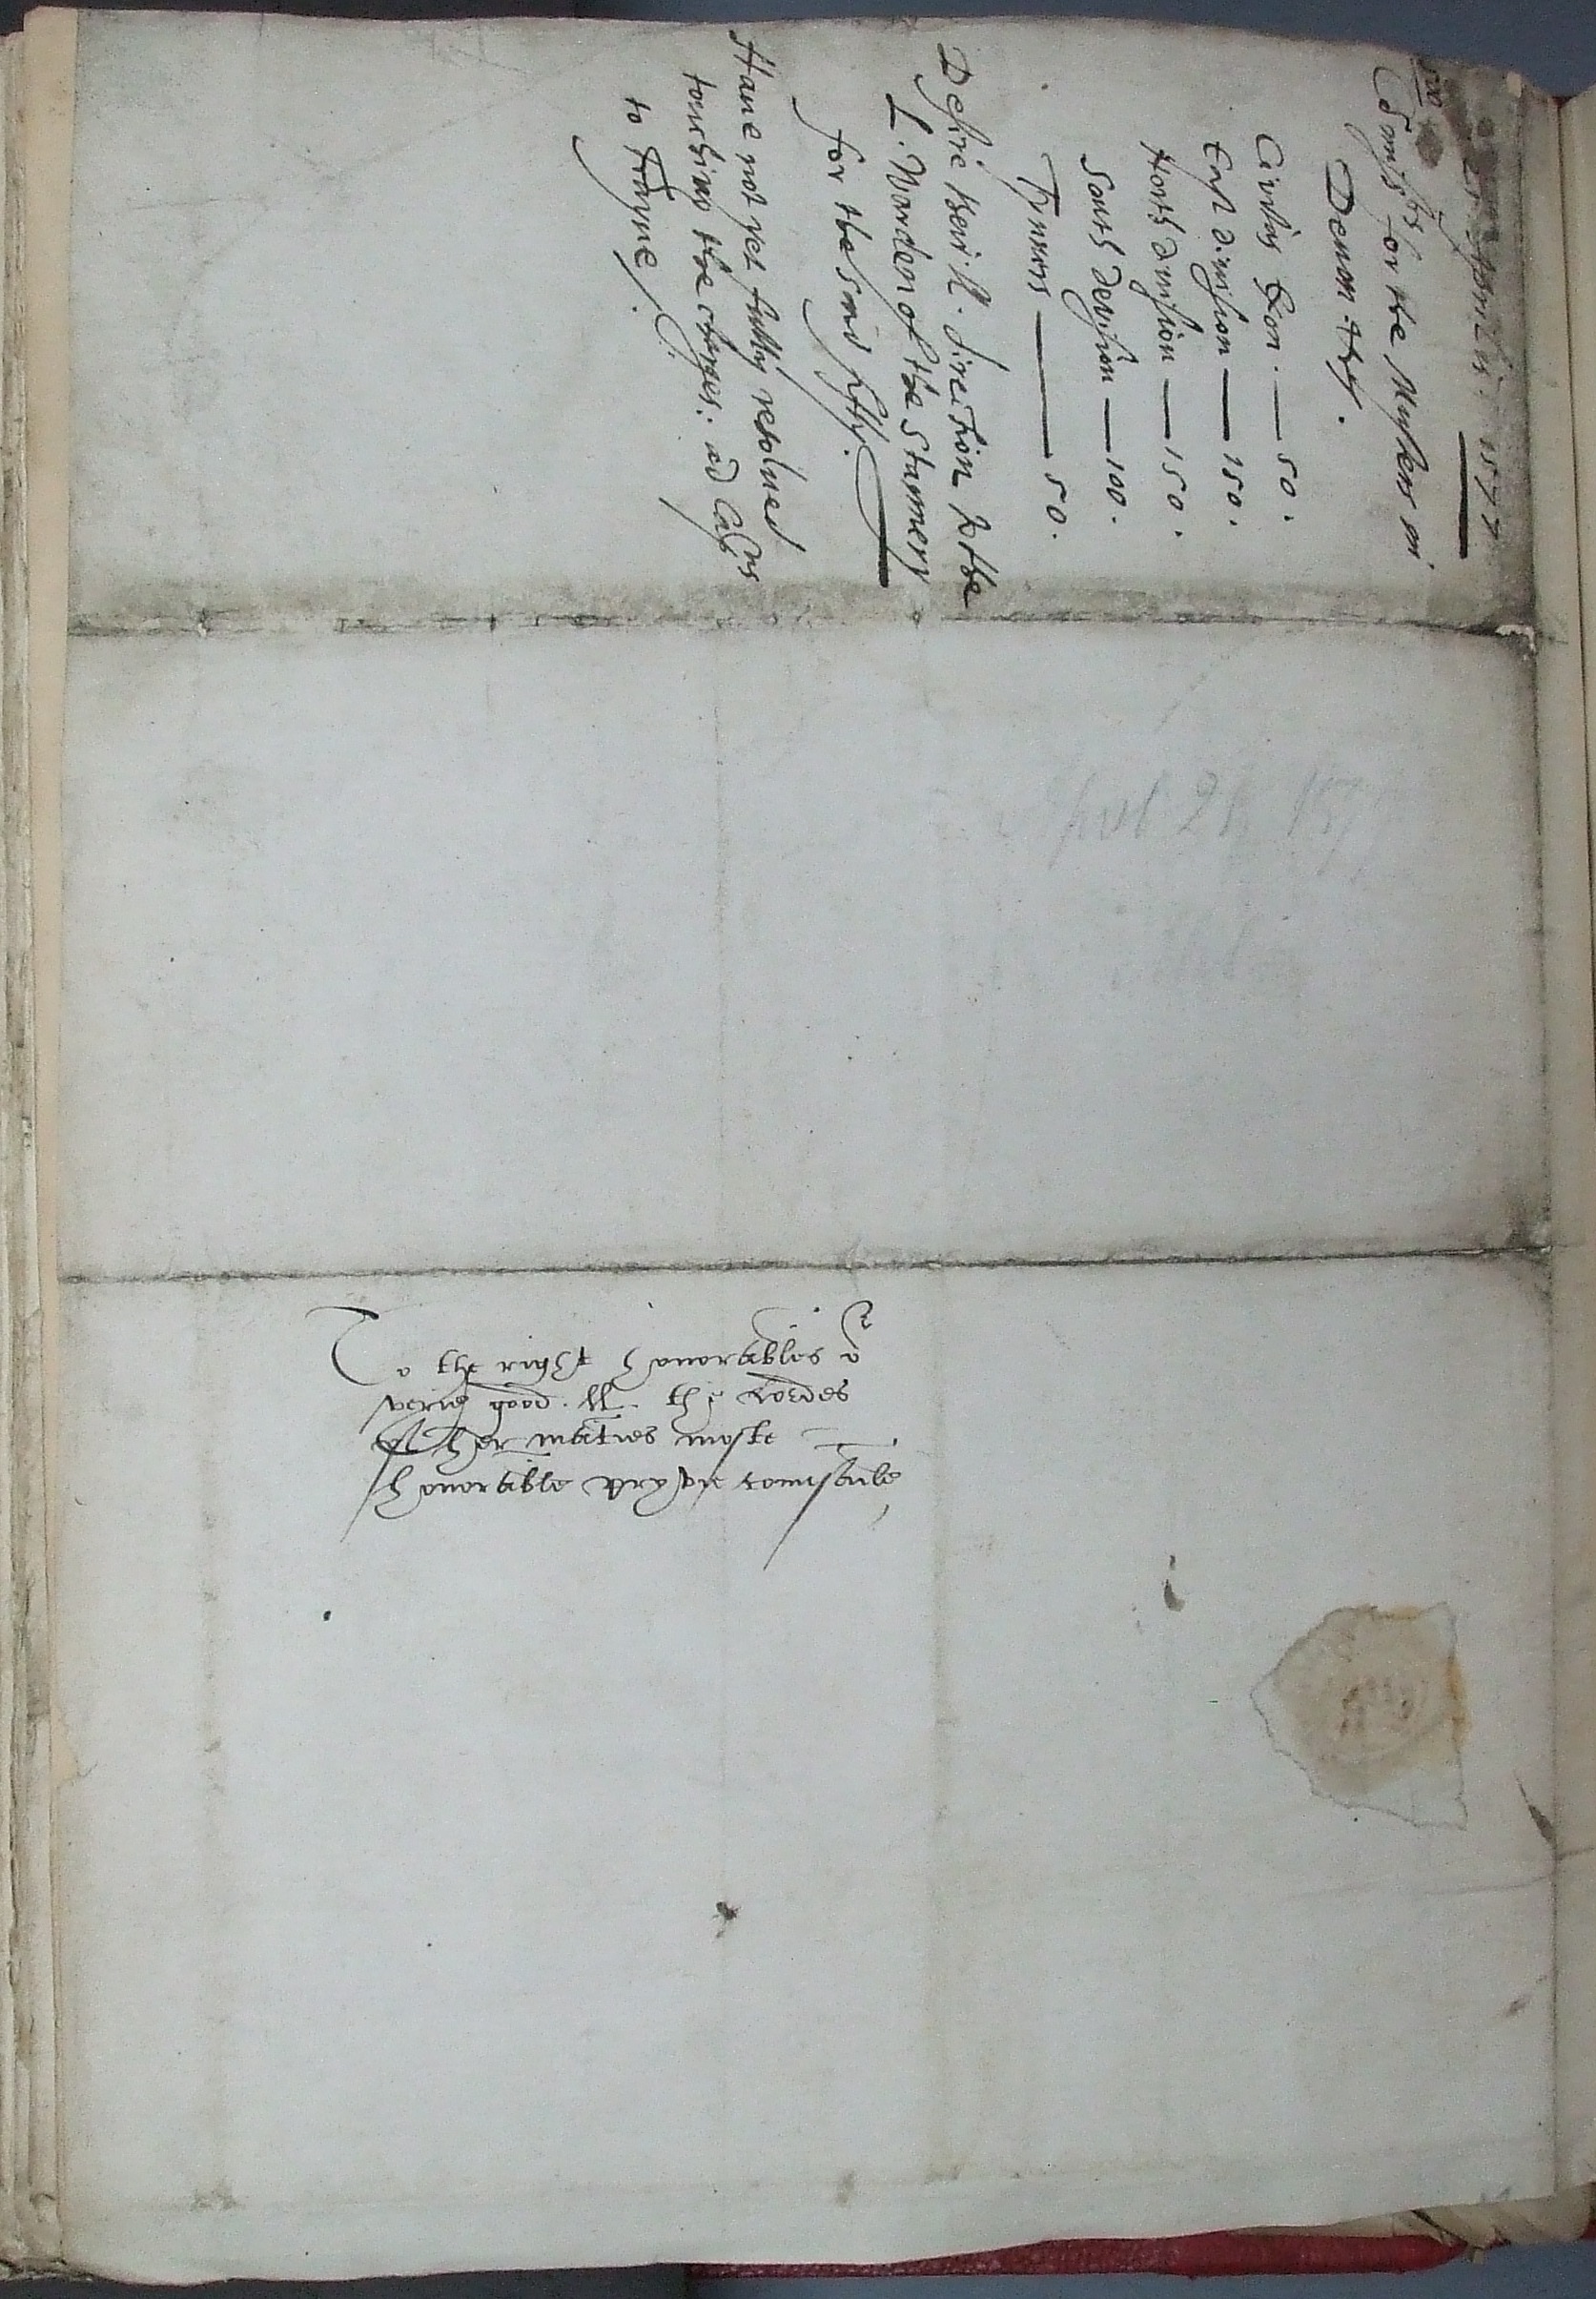 Aprilis. 1577
Comissrs for the Musters in
Devon
Civitas Exon. — 50.
East division — 150.
North division — 150.
South devision — 100.
Tynners — 50.
Desire their ll. direction to the
L. Warden of the Stannery
for the said fifty.
Have not yet fully resolved
touching the charges:
to trayne.
To the right honorables &
verie good. ll. the Lordes
of her maties moste
honorable pryvie counsaile